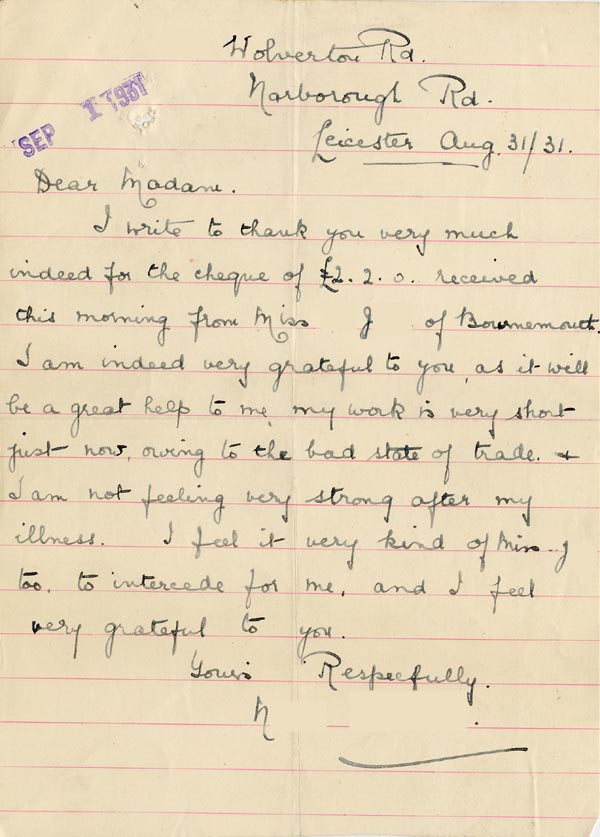 Wolverton Rd.
Narborough Rd.
SEP 1 1931
Leicester Aug. 31/31.
Dear Madam.
I write to thank you very much
indeed for the cheque of £2. 2. 0. received
this morning from Miss J of Bournemouth.
I am indeed very grateful to you, as it will
be a great help to me, my work is very short
just now, owing to the bad state of trade. +
I am not feeling very strong after my
illness. I feel it very kind of Miss J
too, to intercede for me, and I feel
very grateful to you.
Yours Respecfully.
N .